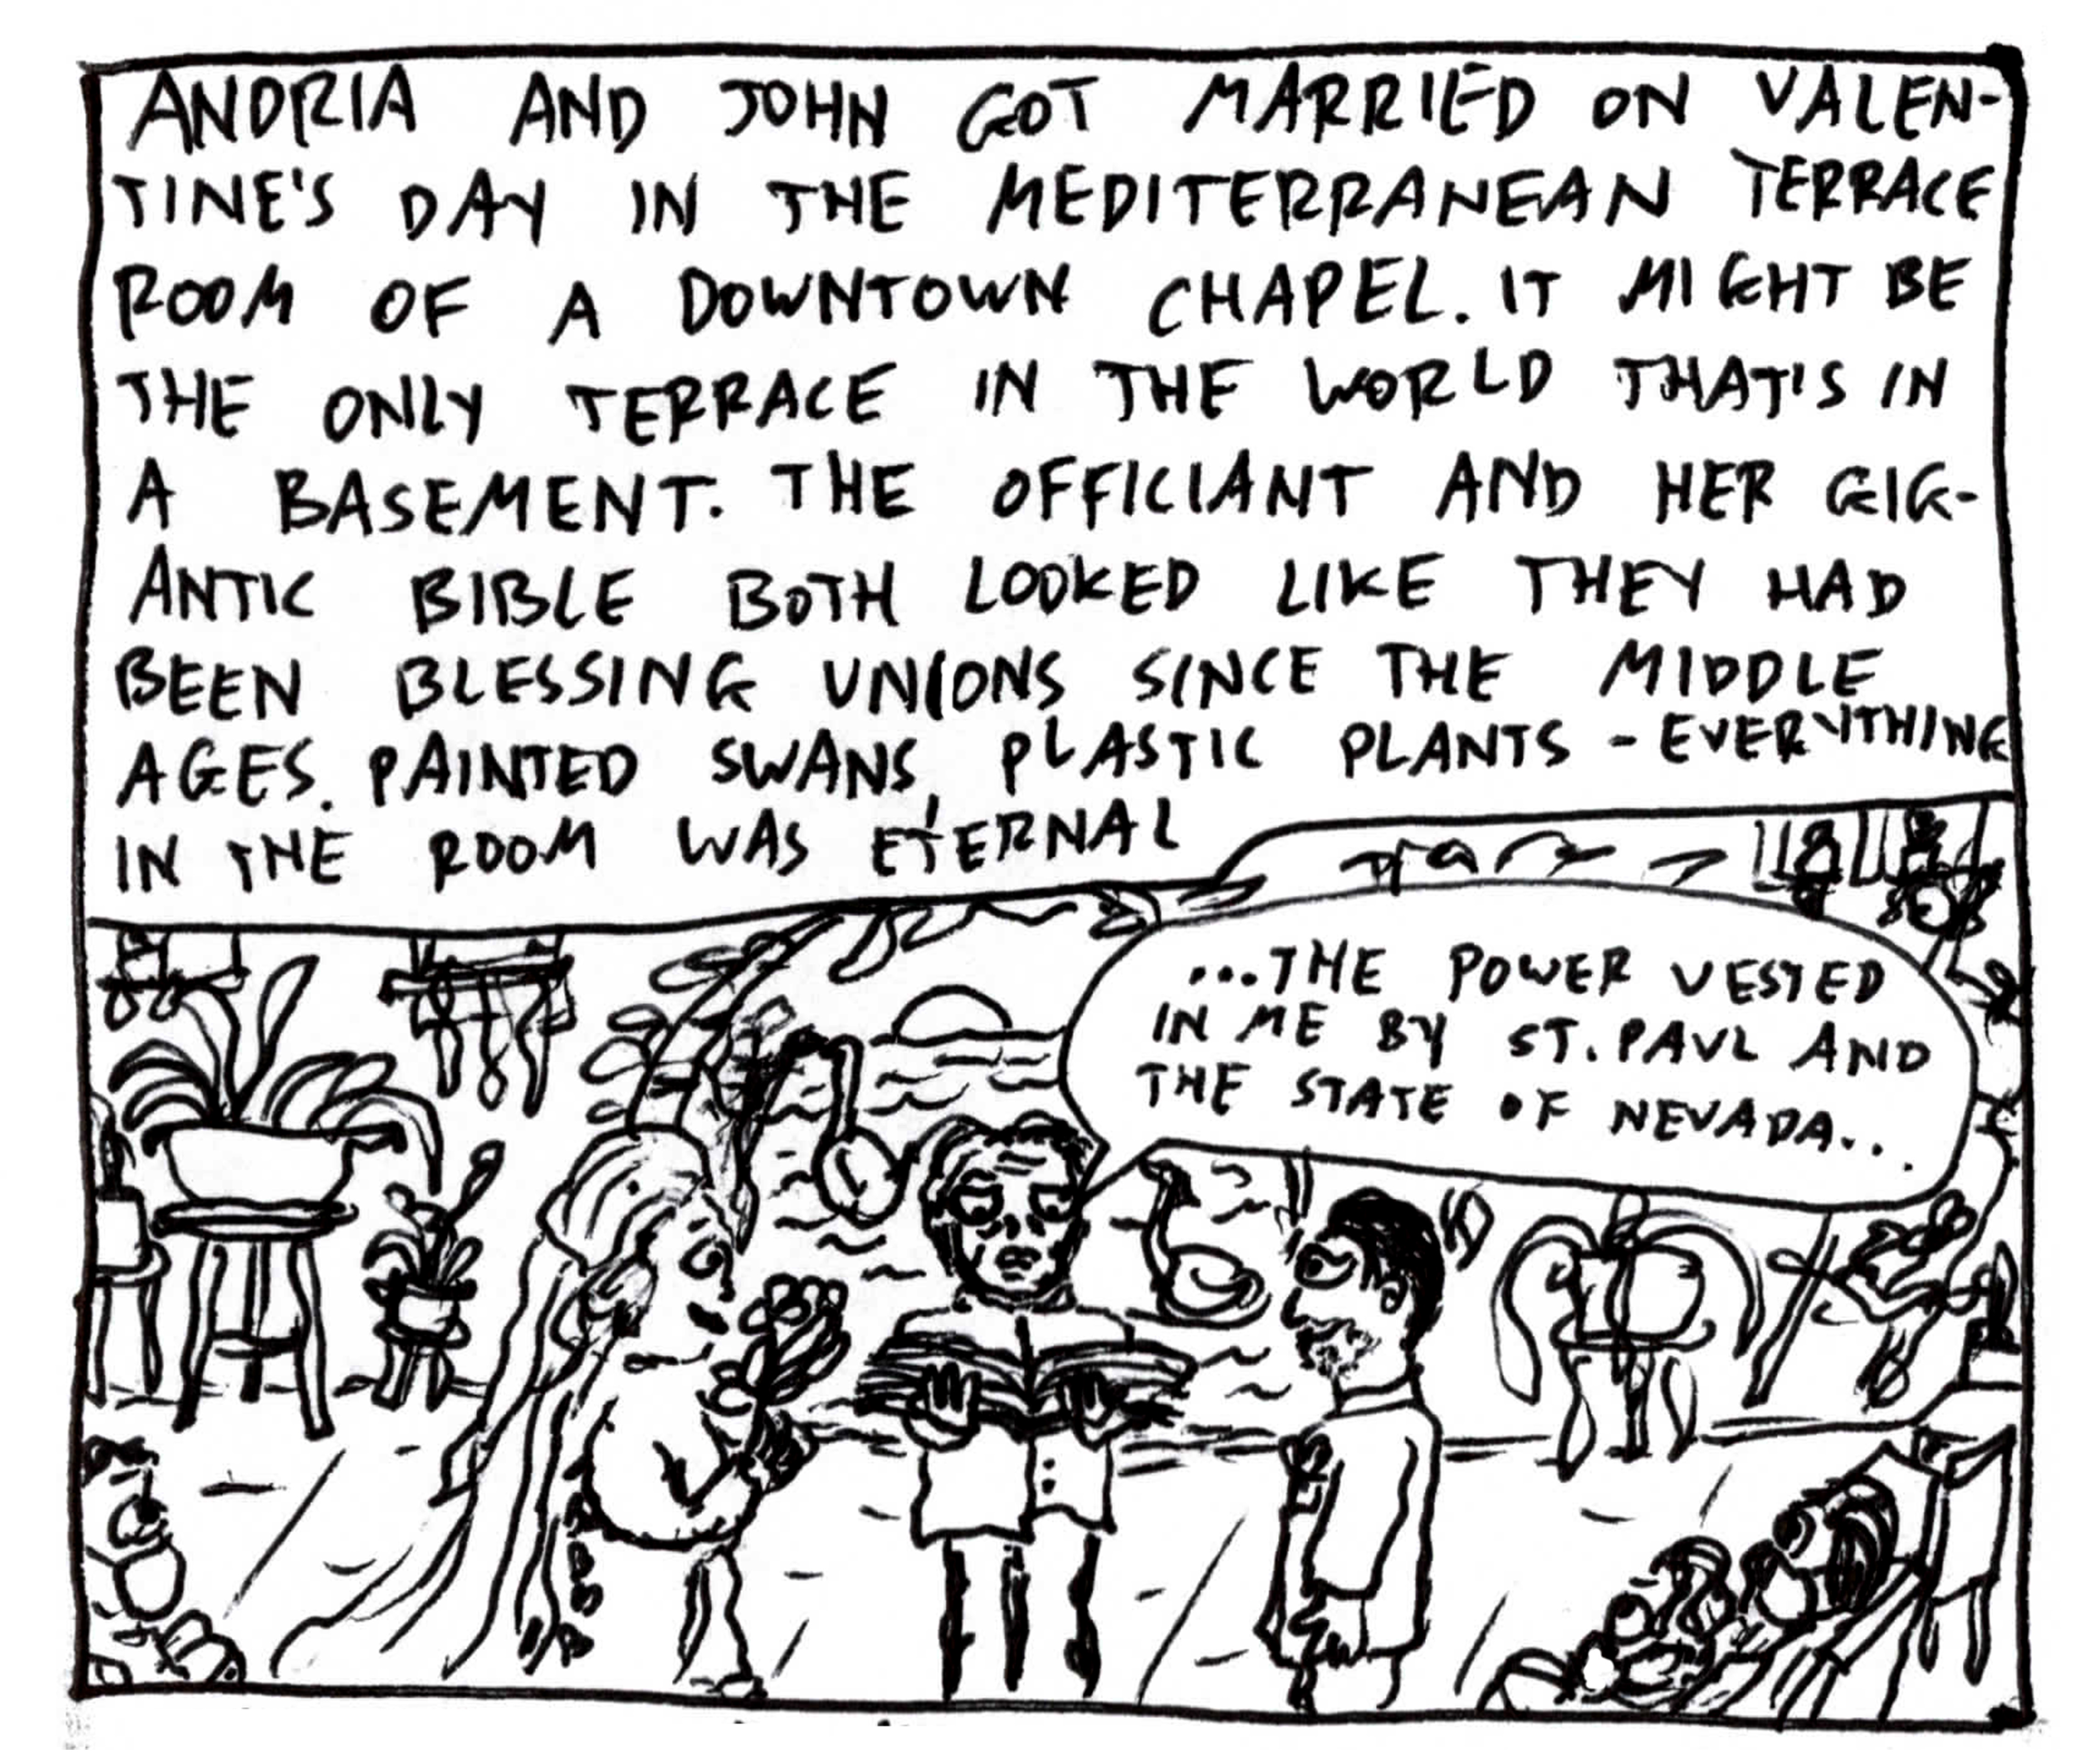 ANDRIA AND JOHN GOT MARRIED ON VALEN-
TINE'S DAY IN THE MEDITERRANEAN TERRACE
ROOM OF A DOWNTOWN CHAPEL. IT MIGHT BE
THE ONLY TERRACE IN THE WORLD THAT'S IN
A BASEMENT. THE OFFICIANT AND HER GIG-
ANTIC BIBLE BOTH LOOKED LIKE THEY HAD
BEEN BLESSING UNIONS SINCE THE MIDDLE
AGES. PAINTED SWANS, PLASTIC PLANTS - EVERYTHING
IN THE ROOM WAS ETERNAL
...THE POWER VESTED
IN ME BY ST. PAUL AND
THE STATE OF NEVADA...